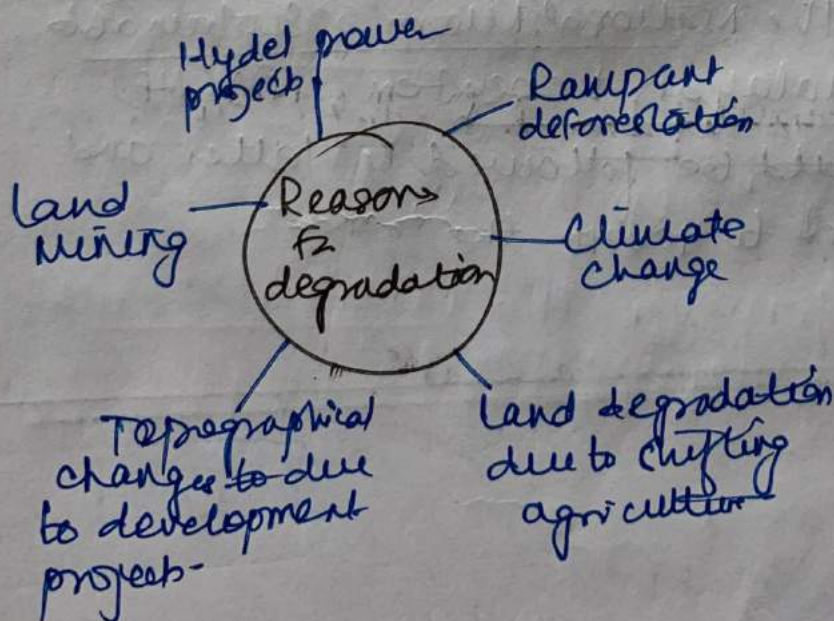 Hydel power
project
Rampant
deforestation
Land
Mining
Reasons
for
degradation
Climate
change
Topographical
changes to due
to development
project-
Land degradation
due to shifting
agriculture